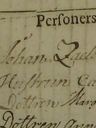 Personers
Johan
Hustrun
Dottren Marg
Dottren Ann